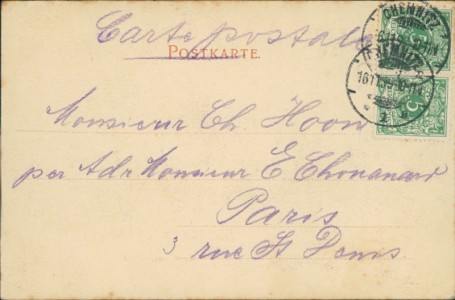 Carte postale
POSTKARTE
CHEMNITZ
CHEMNITZ
5
5
Monsieur Ch. Hoon
per Adr Monsieur E Chonanard
Paris
3 rue St Denis.